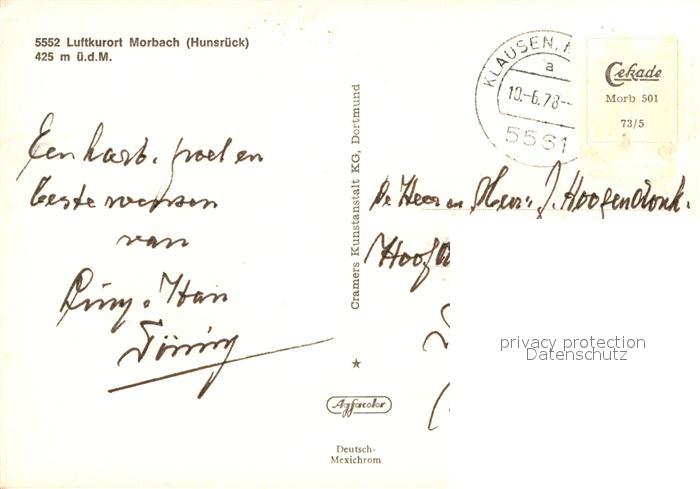 5552 Luftkurort Morbach (Hunsrück)
425 m ü.d.M.
KLAUSEN,
a
10.-6.78.-
5561
Cekade
Morb 501
73/5
Een hart. groet en
beste wensen
van
Riny. Han
Cramers Kunstanstalt KG, Dortmund
De Heer en Mevr. J. Hoogendonk.
Hoof
Agfacolor
Deutsch-
Mexichrom
privacy protection
Datenschutz